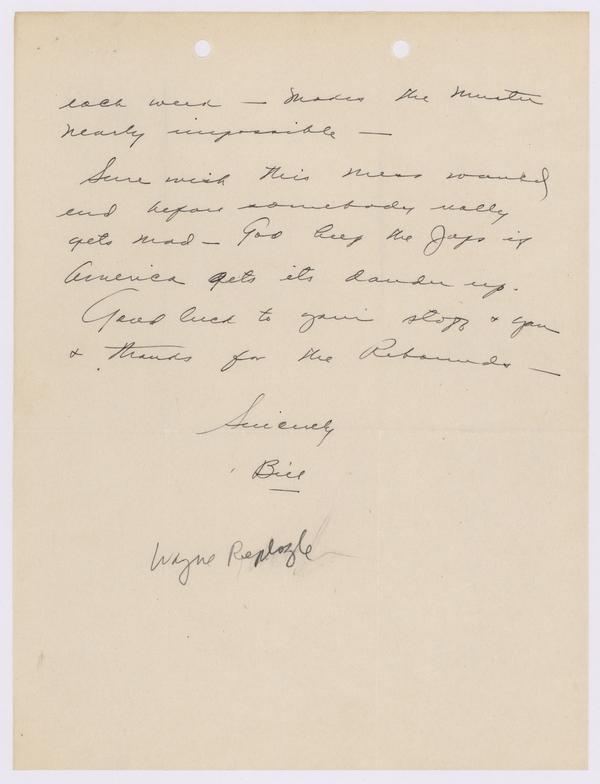 each week — Makes the Muster
nearly impossible —
Sure wish this mess would
end before somebody really
gets mad — God keep the Japs if
America gets its dander up.
Good luck to your staff & you
& thanks for the Rebounds —
Sincerely
Bill
Wayne Replogle